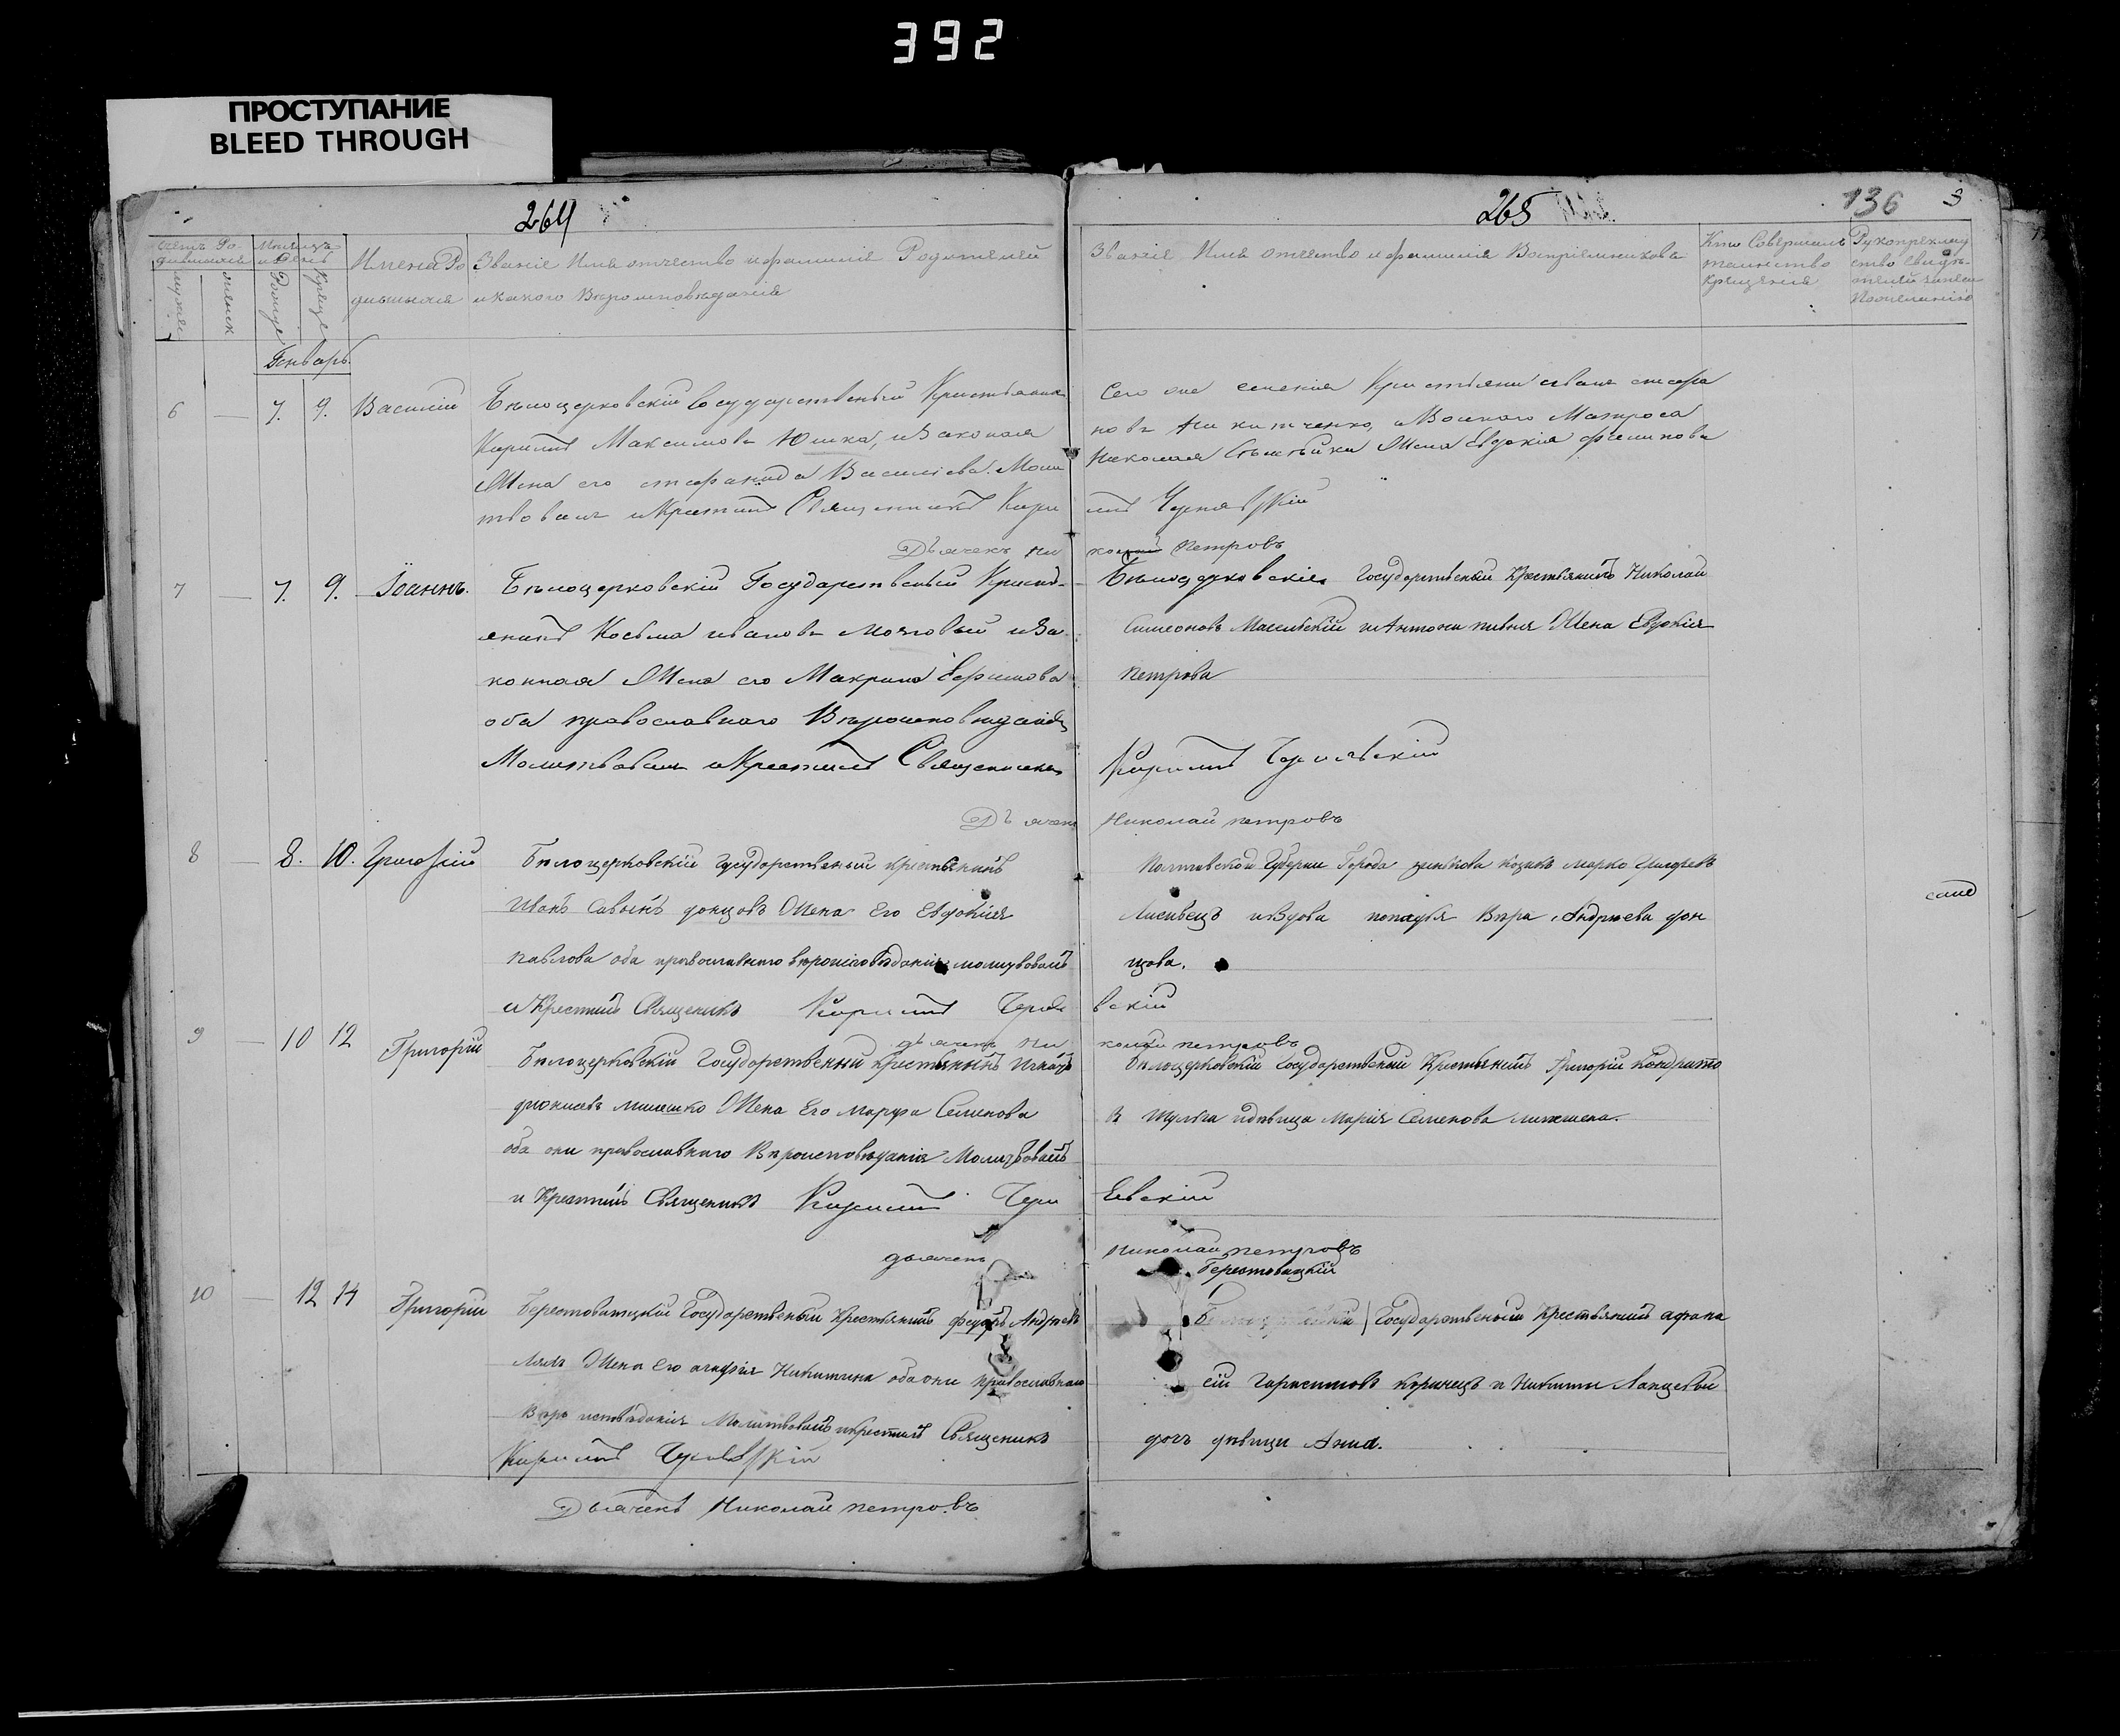 392
ПРОСТУПАНИЕ
BLEED THROUGH
264
265
136 3
Счетъ Ро-
дившихся
Мѣсяцъ
и День
мужск
женск
Рожде
Креще
Имена Ро
дившихся
Званіе Имя отчество и фамилія Родителей
и какого Вѣроисповѣданія
Званіе Имя отчество и фамилія Воспріемниковъ
Кто Совершалъ
таинство
Крещенія
Рукоприклад
ство свидѣ-
телей записи
Январь
6 — 7. 9. Василій
Бѣлоцерковскій Государственый Крестьянин
Кирилъ Максимовъ Юшка, и Законая
Жена его Васильева. Моли
твовалъ и Крестилъ Священикъ Кири
Дьячекъ Ни
Николая Жена Евдокія
колай Петровъ
7 — 7. 9. Іоаннъ.
Бѣлоцерковскій Государственый Крестья-
янинъ Косьма ивановъ Мозговый и За
конная Жена его Макрина Ефимова
оба православнаго Вѣроисповѣданія
Молитвовалъ и Крестилъ Священикъ
Дьячекъ
Бѣлоцерковскіе Государственый Крестьянинъ Николай
Симеоновъ и Антона пивня Жена Евдокія
Петрова
Кирилъ
Николай петровъ
8 — 8. 10. Григорій
Бѣлоцерковскій Государственый крестьянинъ
Иванъ Савинъ донцовъ Жена Его Евдокія
павлова оба православного вѣроисповѣданія молитвовалъ
и Крестилъ Священикъ Кирилъ Черня
вскій
дьячекъ Ни
колай петровъ
Полтавской Губерни Города зинькова козакъ Марко Григорьевъ
Лисивецъ и Вдова попадья Вѣра Андреева дон
цова.
9 — 10 12 Григорій
Бѣлоцерковскій Государственый Крестьянинъ Игнатъ
дионисевъ милешко Жена Его марфа Семенова
оба они православного Вѣроисповѣданія Молитвовалъ
и Крестилъ Священикъ Кирилъ Черн
Евскій
дьячекъ
Николай петровъ
Бѣлоцерковскій Государственый Крестьянинъ Григорій Кондрато
в Шульга и дѣвица Марія Семенова
10 — 12 14 Григорій
Берестовацкій Государственый Крестьянинъ федоръ Андреевъ
Жена Его Никитина оба они православнаго
Вѣроисповѣданія Молитвовалъ и крестилъ Священикъ
Кирилъ
Дьячекъ Николай петровъ
Берестовацкій
Государственый Крестьянинъ афана
сій Гарасимовъ и Никиты
дочь дѣвица Анна.